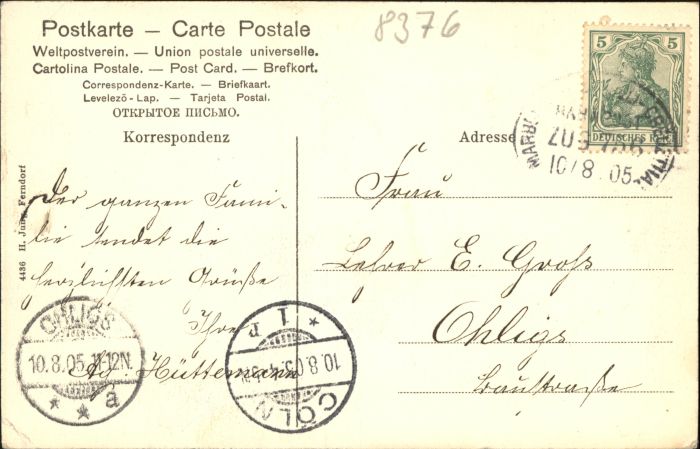 8376
Postkarte – Carte Postale
Weltpostverein. — Union postale universelle.
Cartolina Postale. — Post Card. — Brefkort.
Correspondenz-Karte. — Briefkaart.
Levelező-Lap. — Tarjeta Postal.
ОТКРЫТОЕ ПИСЬМО.
Korrespondenz
Adresse
5 5
DEUTSCHES REICH
BAHNPOST
ZUG
10/8 05
4436 H. Jung, Ferndorf
Der ganzen Fami-
lie sendet die
herzlichsten Grüße
Ihre
Hüttemann
Frau
Lehrer E. Groß
Ohligs
Baustraße
OHLIGS
10.8.05. 11-12N.
* * a
CÖLN
10.8.05
* 1 P